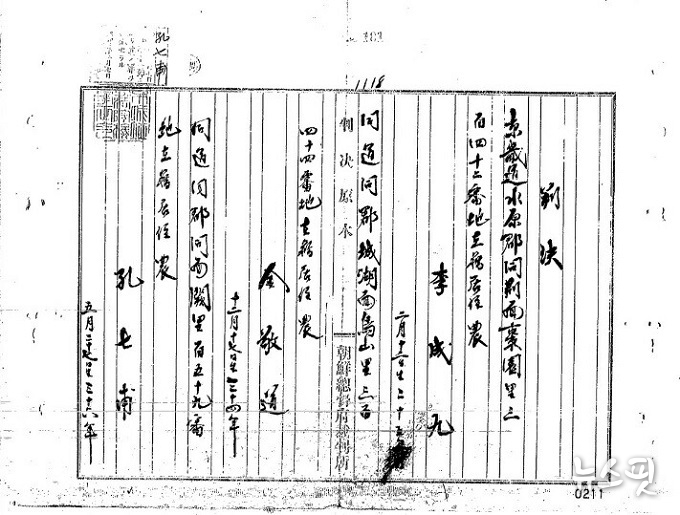 判決
京畿道水原郡同面棗園里三
百四十二番地在籍居住農
李成九
二月十二日生二十五年
同道同郡城湖面烏山里三百
四十四番地在籍居住農
金敬道
十二月十七日生三十四年
同道同郡同面闕里百五十九番
地在籍居住農
孔七甫
五月二十七日生三十六年
判決原本
朝鮮總督府裁判所
1118
181
孔七甫
뉴스핏
0211